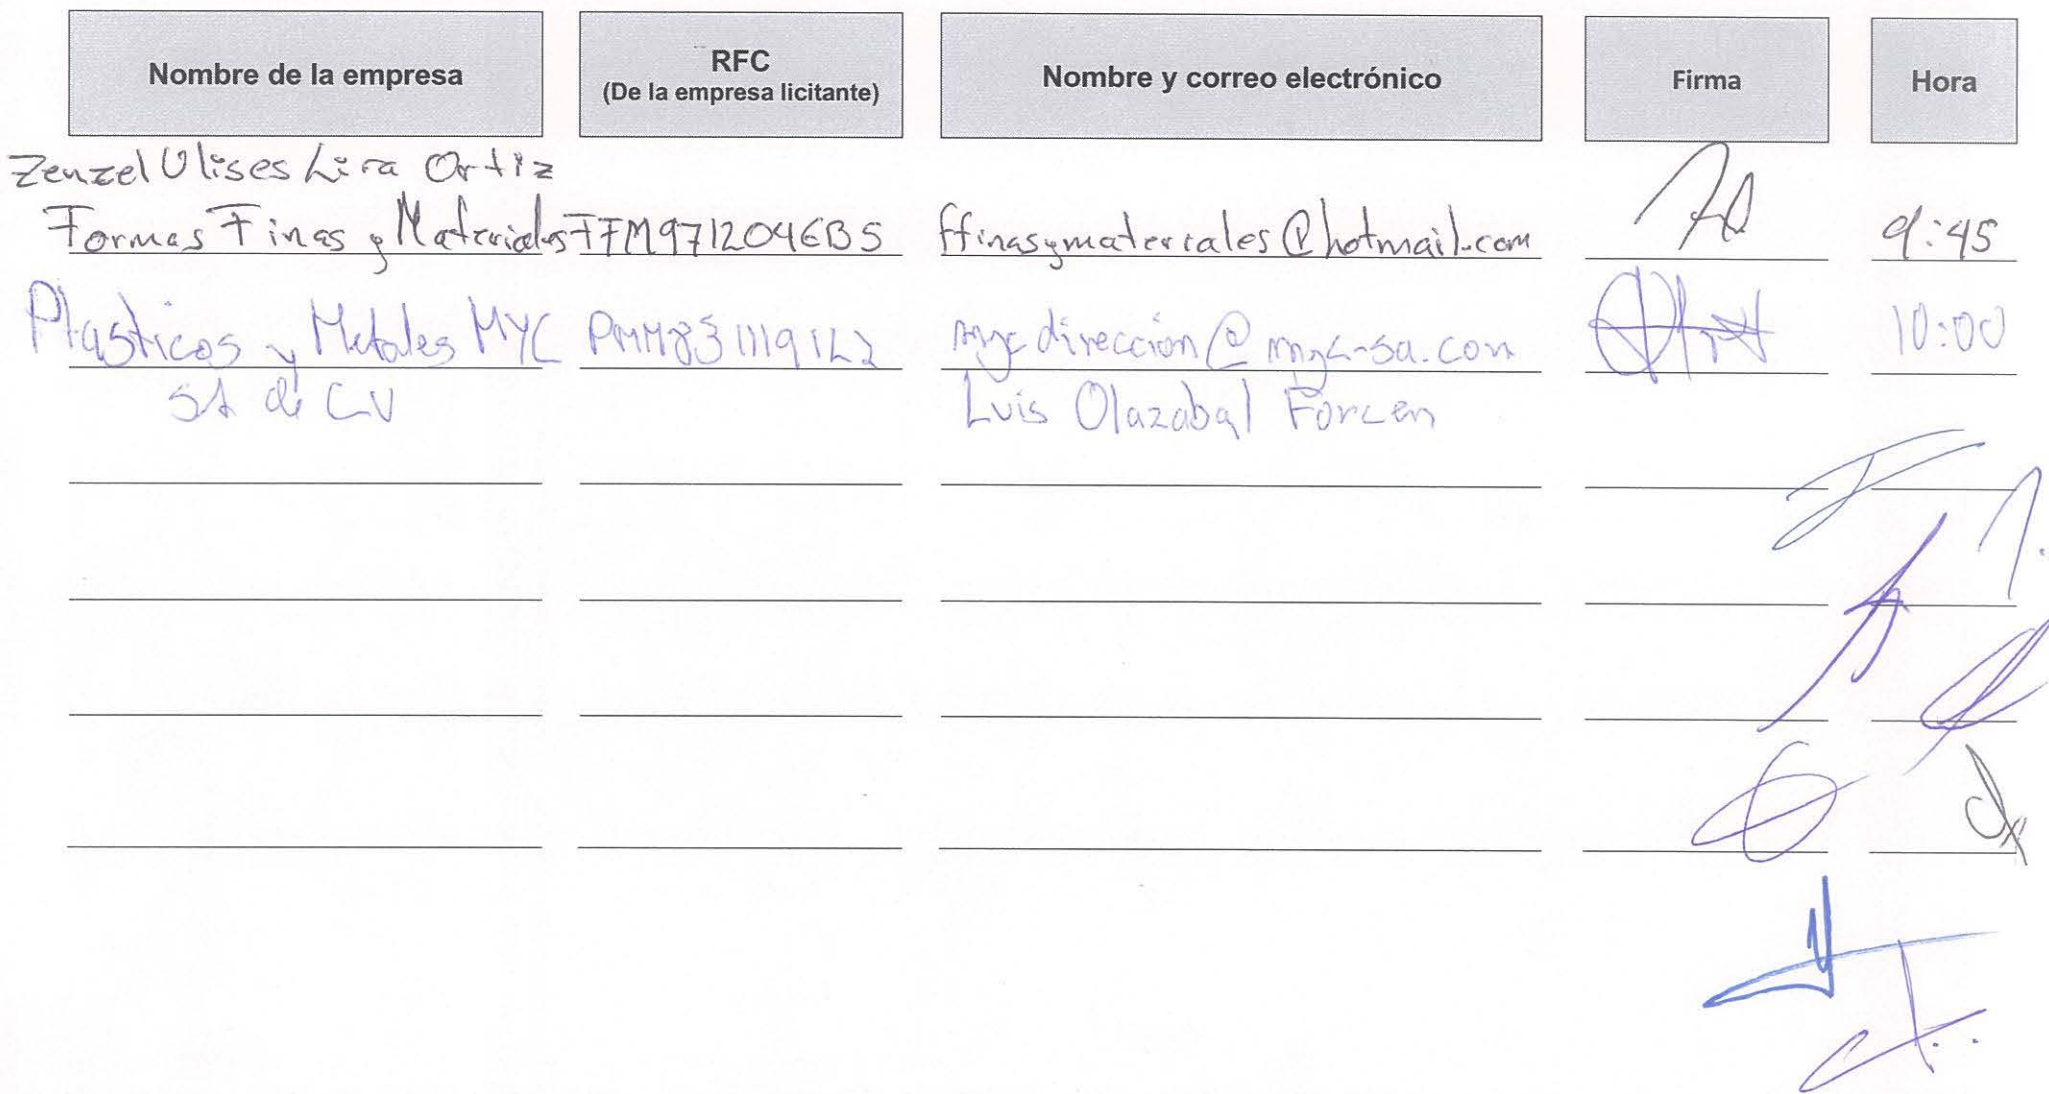 Nombre de la empresa
RFC
(De la empresa licitante)
Nombre y correo electrónico
Firma
Hora
Zenzel Ulises Lira Ortiz
Formas Finas y Materiales FFM971204EB5 ffinasymateriales@hotmail.com 9:45
Plasticos y Metales MYC PMM8311191L2 mycdirección@myc-sa.com 10:00
SA de CV Luis Olazabal Forcen